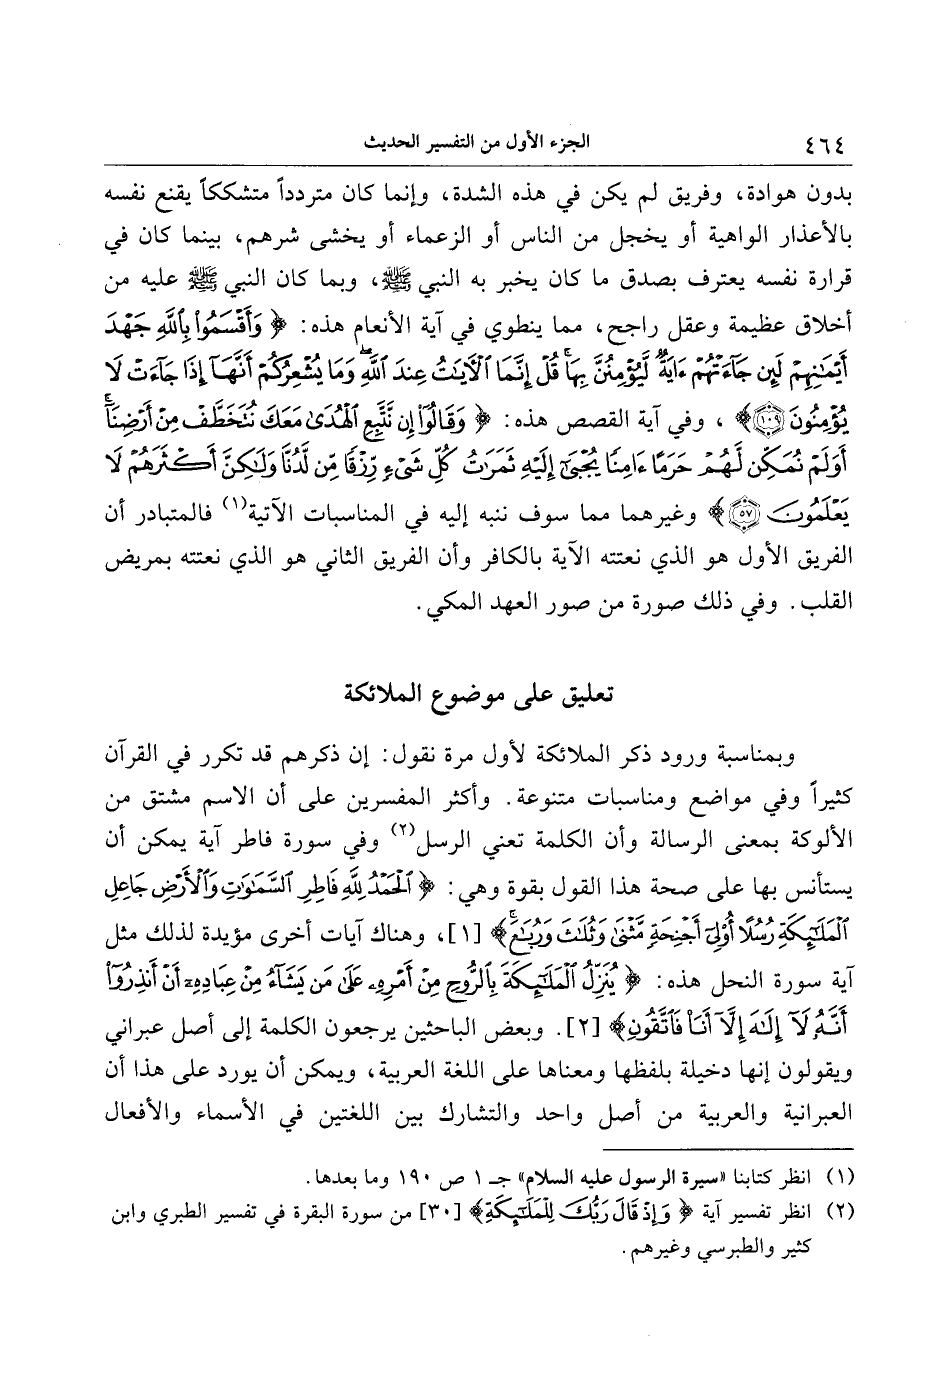 ٤٦٤ الجزء الأول من التفسير الحديث
بدون هوادة، وفريق لم يكن في هذه الشدة، وإنما كان متردداً متشككاً يقنع نفسه
بالأعذار الواهية أو يخجل من الناس أو الزعماء أو يخشى شرهم، بينما كان في
قرارة نفسه يعترف بصدق ما كان يخبر به النبي ﷺ، وبما كان النبي ﷺ عليه من
أخلاق عظيمة وعقل راجح، مما ينطوي في آية الأنعام هذه: ﴿ وَأَقْسَمُوا۟ بِٱللَّهِ جَهْدَ
أَيْمَـٰنِهِمْ لَئِن جَآءَتْهُمْ ءَايَةٌ لَّيُؤْمِنُنَّ بِهَا ۚ قُلْ إِنَّمَا ٱلْـَٔايَـٰتُ عِندَ ٱللَّهِ ۖ وَمَا يُشْعِرُكُمْ أَنَّهَآ إِذَا جَآءَتْ لَا
يُؤْمِنُونَ ١٠٩﴾ ، وفي آية القصص هذه: ﴿ وَقَالُوٓا۟ إِن نَّتَّبِعِ ٱلْهُدَىٰ مَعَكَ نُتَخَطَّفْ مِنْ أَرْضِنَآ ۚ
أَوَلَمْ نُمَكِّن لَّهُمْ حَرَمًا ءَامِنًا يُجْبَىٰٓ إِلَيْهِ ثَمَرَٰتُ كُلِّ شَىْءٍ رِّزْقًا مِّن لَّدُنَّا وَلَـٰكِنَّ أَكْثَرَهُمْ لَا
يَعْلَمُونَ ٥٧﴾ وغيرهما مما سوف ننبه إليه في المناسبات الآتية(١) فالمتبادر أن
الفريق الأول هو الذي نعتته الآية بالكافر وأن الفريق الثاني هو الذي نعتته بمريض
القلب. وفي ذلك صورة من صور العهد المكي.
تعليق على موضوع الملائكة
وبمناسبة ورود ذكر الملائكة لأول مرة نقول: إن ذكرهم قد تكرر في القرآن
كثيراً وفي مواضع ومناسبات متنوعة. وأكثر المفسرين على أن الاسم مشتق من
الألوكة بمعنى الرسالة وأن الكلمة تعني الرسل(٢) وفي سورة فاطر آية يمكن أن
يستأنس بها على صحة هذا القول بقوة وهي: ﴿ ٱلْحَمْدُ لِلَّهِ فَاطِرِ ٱلسَّمَـٰوَٰتِ وَٱلْأَرْضِ جَاعِلِ
ٱلْمَلَـٰٓئِكَةِ رُسُلًا أُو۟لِىٓ أَجْنِحَةٍ مَّثْنَىٰ وَثُلَـٰثَ وَرُبَـٰعَ ۚ﴾ [١]، وهناك آيات أخرى مؤيدة لذلك مثل
آية سورة النحل هذه: ﴿ يُنَزِّلُ ٱلْمَلَـٰٓئِكَةَ بِٱلرُّوحِ مِنْ أَمْرِهِۦ عَلَىٰ مَن يَشَآءُ مِنْ عِبَادِهِۦٓ أَنْ أَنذِرُوٓا۟
أَنَّهُۥ لَآ إِلَـٰهَ إِلَّآ أَنَا۠ فَٱتَّقُونِ﴾ [٢]. وبعض الباحثين يرجعون الكلمة إلى أصل عبراني
ويقولون إنها دخيلة بلفظها ومعناها على اللغة العربية، ويمكن أن يورد على هذا أن
العبرانية والعربية من أصل واحد والتشارك بين اللغتين في الأسماء والأفعال
(١) انظر كتابنا «سيرة الرسول عليه السلام» جـ ١ ص ١٩٠ وما بعدها.
(٢) انظر تفسير آية ﴿ وَإِذْ قَالَ رَبُّكَ لِلْمَلَـٰٓئِكَةِ﴾ [٣٠] من سورة البقرة في تفسير الطبري وابن
كثير والطبرسي وغيرهم.